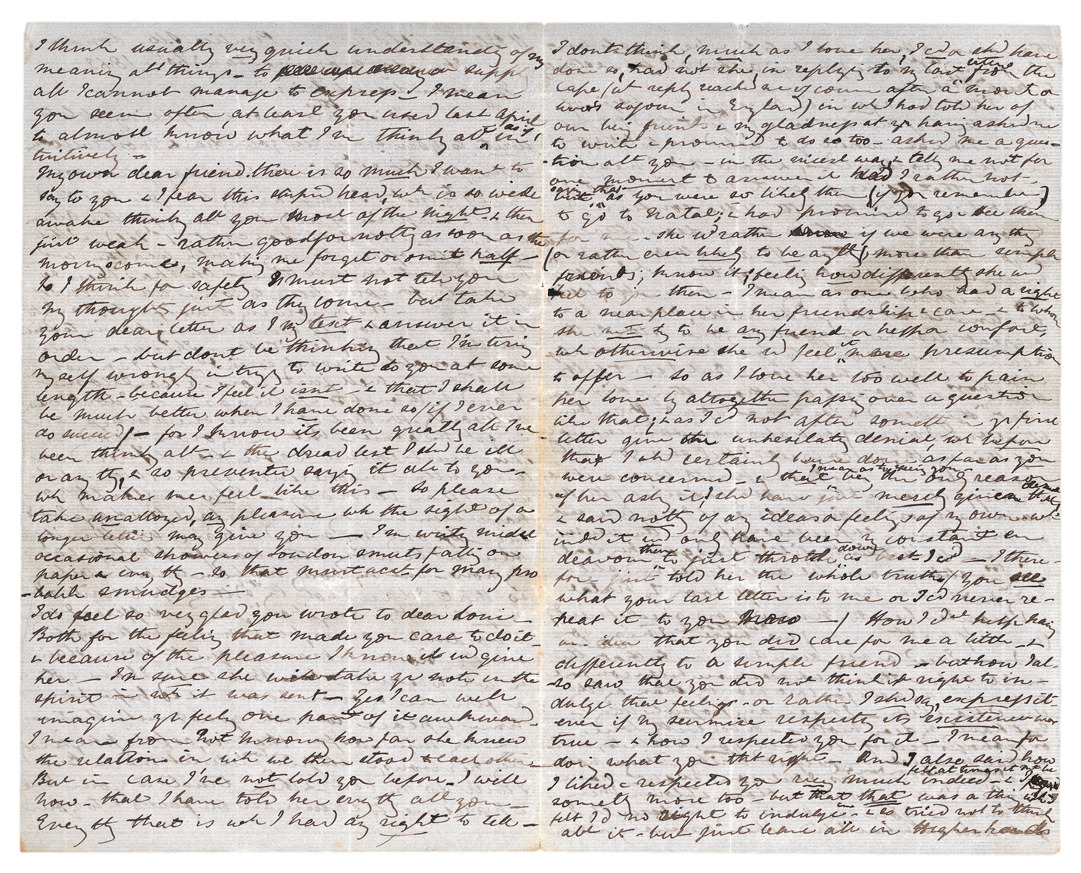 I think usually very quick understanding of my
meaning abt things - to suppl
all I cannot manage to express - I mean
you seem often at least you used last April
to almost know what I'm thinkg abt as it, in
tuitively -
My own dear friend there is so much I want to
say to you & I fear this stupid head, wh is so wide
awake thinkg abt you most of the night & then
just weak - rather good for nothg as soon as the
morng comes, making me forget or omit half -
So I think for safety I must not tell you
my thoughts just as they come - but take
your dear letter as I'm text & answer it in
order - but dont be thinking that I'm tirig
myself wrongly in tryg to write to you at some
length - because I feel it isnt - & that I shall
be much better when I have done so, if I ever
do succeed/ - for I know its been greatly all I've
been thinkg abt - & the dread lest I shd be ill
or any thg, & so prevented sayig it all to you -
wh makes me feel like this - so please
take unalloyed, any pleasure wh the sight of a
longer letter may give you — I'm writg midst
occasional showers of London smuts, fallg on
paper & every thg - so that must acct for many pro
bable smudges —
I do feel so very glad you wrote to dear Louie -
Both for the feelig that made you care to do it -
& because of the pleasure I know it wd give
her - I'm sure she will take yr note in the
spirit in wh it was sent - Yes I can well
imagine yr feelg one part of it awkward
I mean from not knowg how far she knew
the relations in wh we then stood to each other -
But in case I've not told you before, I will
now - that I have told her every thg abt you -
Every thg that is wh I had any right to tell -
I dont think, much as I love her, I cd or shd have
done so, had not she, in replyig to my last from the
Cape (wt reply reached me of course after a month or
two's sojourn in England) in wh I had told her of
our big friend & my gladness at yr having asked me
to write & promised to do so too - asked me a ques-
tion abt you - in the nicest way & tell me not for
one moment to answer it had I rather not -
as you were so likely then (if you remember)
to go to Natal, & had promised to go see them
for me - she wd rather know if we were any thg
(or rather even likely to be any thg) more than simple
friends, know it, feelig how differently she wd
feel to you then - I mean as one who had a right
to a near place in her friendship & care - & to whom
she might try to be any friend or help or comfort,
wh otherwise she wd feel it mere presumption
to offer - so as I love her too well to pain
her love by altogether passg over a question
like that, & as I cd not after somethg in yr first
letter give the unhesitatg denial wh before
that I shd certainly have done as far as you
were concerned - & that beg the only reason
of her askg it, I shd have just merely given that
& said nothg of any ideas or feelgs of my own -
indeed it wd only have been my constant en
deavour then to just throttle down as best I cd - I there-
fore just told her the whole truth (you see
what your last letter is to me or I cd never re-
peat it to you now —) How I'd not help havig
an idea that you did care for me a little - &
differently to a simple friend - but how I al-
so saw that you did not think it right to in-
dulge that feelig - or rather I shd say express it
ever if my surmise respectg its existence was
true - & how I respected you for it - I mean for
doig what you thot right - And I also said how
I liked & respected you very much indeed -
somethg more too, but that that was a thig wh I
felt I'd no right to indulge - & so tried not to think
abt it - but just leave all in Higher hands